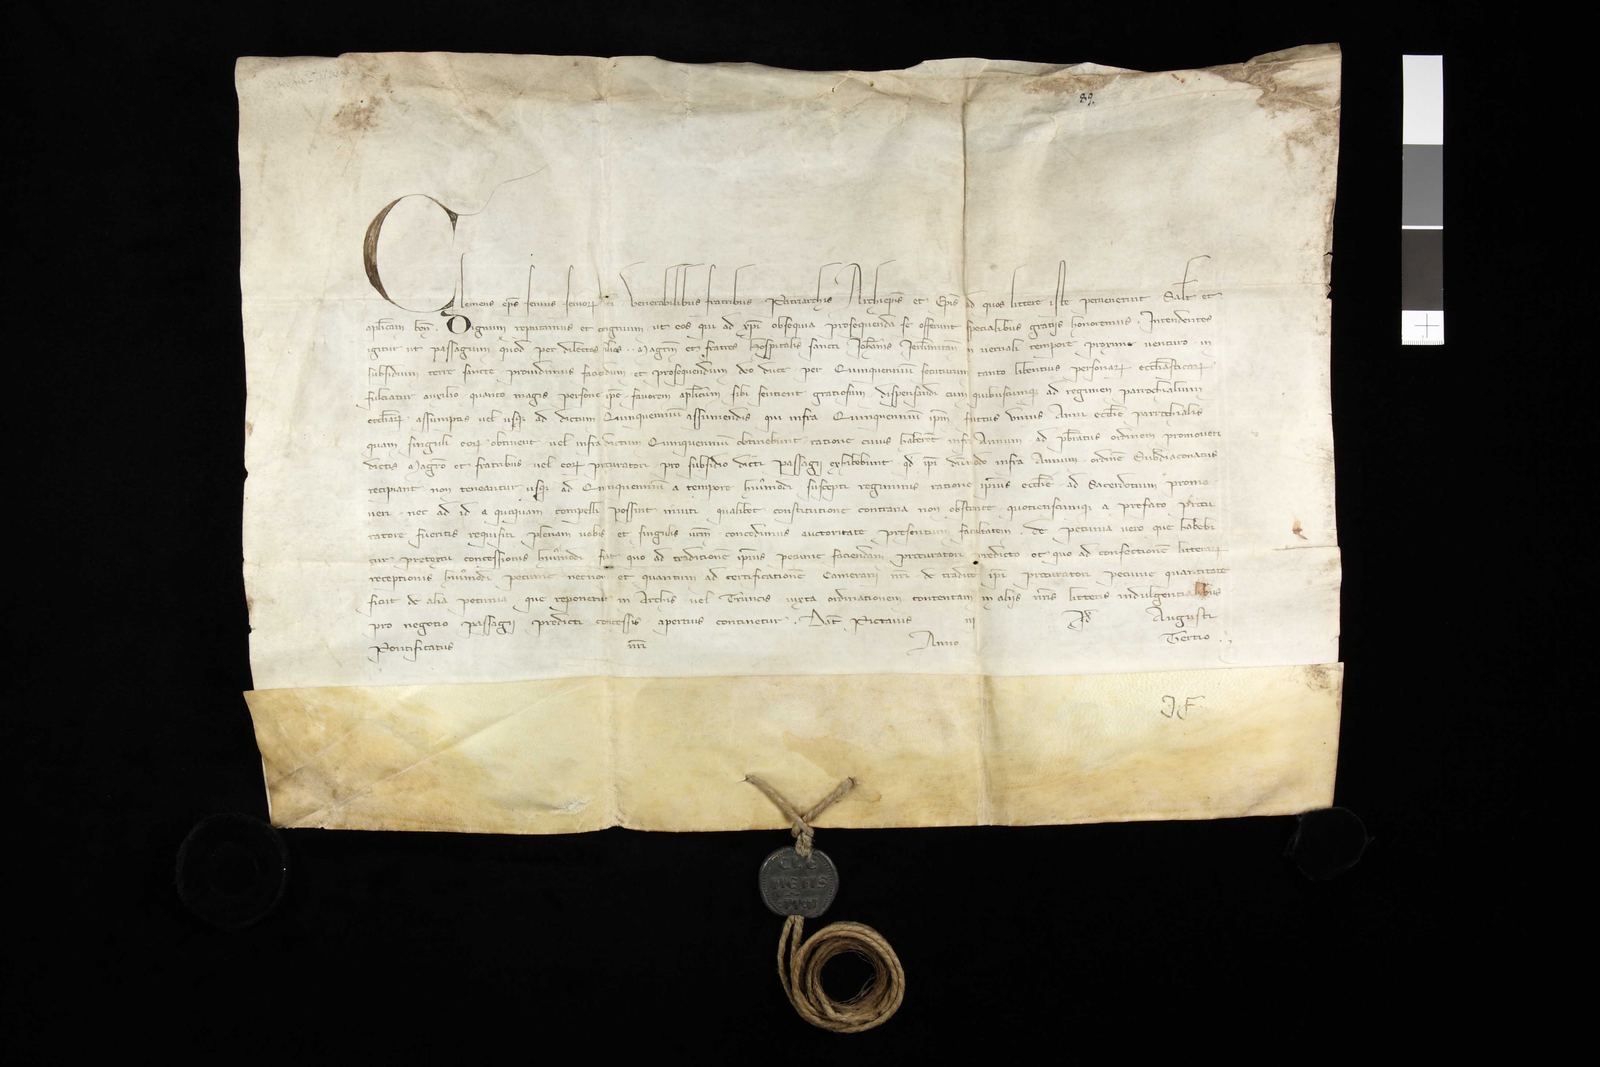 89.
Clemens eps seruus seruoꝝ dei Venerabilibus fratribus Patriarchis Archiepis et Epis ad quos littere iste peruenerint Salt et
aplicam ben. Dignum reputamus et congruum ut eos qui ad xpi obsequia prosequenda se offerunt specialibus gratijs honoremus. Intendentes
igitur ut passagium quod per dilectos filios . . Magrm et fratres Hospitalis sancti Johannis Jerlimitani in vernali tempore proximo venturo in
subsidium terre sancte prouidimus faciendum et prosequendum deo duce per Quinquennium secuturum tanto libentius personaꝝ ecclesiasticaꝝ
fulciatur auxilio quanto magis persone ipse fauorem aplicum sibi sentient gratiosum dispensandi cum quibuscumqꝫ ad regimen parrochialium
eccliaꝝ assumptis uel usqꝫ ad dictum Quinquennium assumendis qui infra Quinquennium ipm fructus unius Anni ecclie parrochialis
quam singuli eoꝝ obtinent uel infra dictum Quinquennium obtinebunt ratione cuius haberent infra Annum ad pbratus ordinem promoueri
dictis Magro et fratribus uel eoꝝ procuratori pro subsidio dicti passagij exhibebunt qd ipi dummodo infra Annum ordinem Subdiaconatus
recipiant non teneantur usqꝫ ad Quinquennium a tempore huiusmodi suscepti regiminis ratione ipsius ecclie ad Sacerdotium promo
ueri nec ad id a quoquam compelli possint inuiti qualibet constitutione contraria non obstante quotienscumqꝫ a prefato procu
ratore fueritis requisiti plenam uobis et singulis urm concedimus auctoritate presentium facultatem. de pecunia uero que habebi
tur pretextu concessionis huiusmodi fiat quo ad traditionem ipsius pecunie faciendam procuratori predicto et quo ad confectionem litteraꝝ
receptionis huiusmodi pecunie necnon et quantum ad certificationem Camerarij nri de tradita ipi procuratori pecunie quantitate
sicut de alia pecunia que reponetur in Archis uel Truncis iuxta ordinationem contentam in alijs nris litteris indulgentialibus
pro negotio passagij predicti concessis apertius continetur. Dat Pictauis iij Id Augusti
Pontificatus nri Anno Tertio.
CLE
MENS
PP V